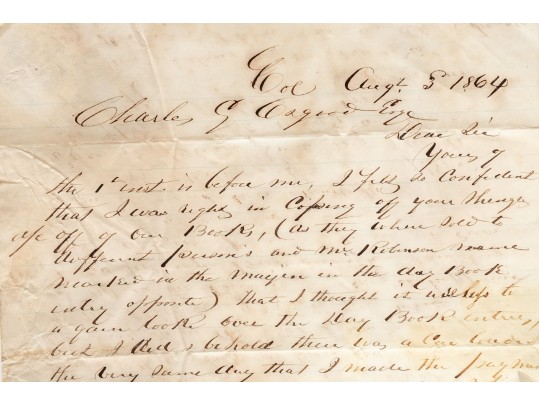 Col Augt 5 1864
Charles G Osgood Esqr
Dear Sir
Yours of
the 1st inst. is before me, I felt so Confident
that I was right in Copying of your Shingle
a/c off of our Books, (as they where sold to
different persons and Mr Robinson name
marked in the margin in the day Book
entry opposite) that I thought it useless to
a gain look over the Day Book entries,
but I did & behold there was a Car load
the very same day that I made the